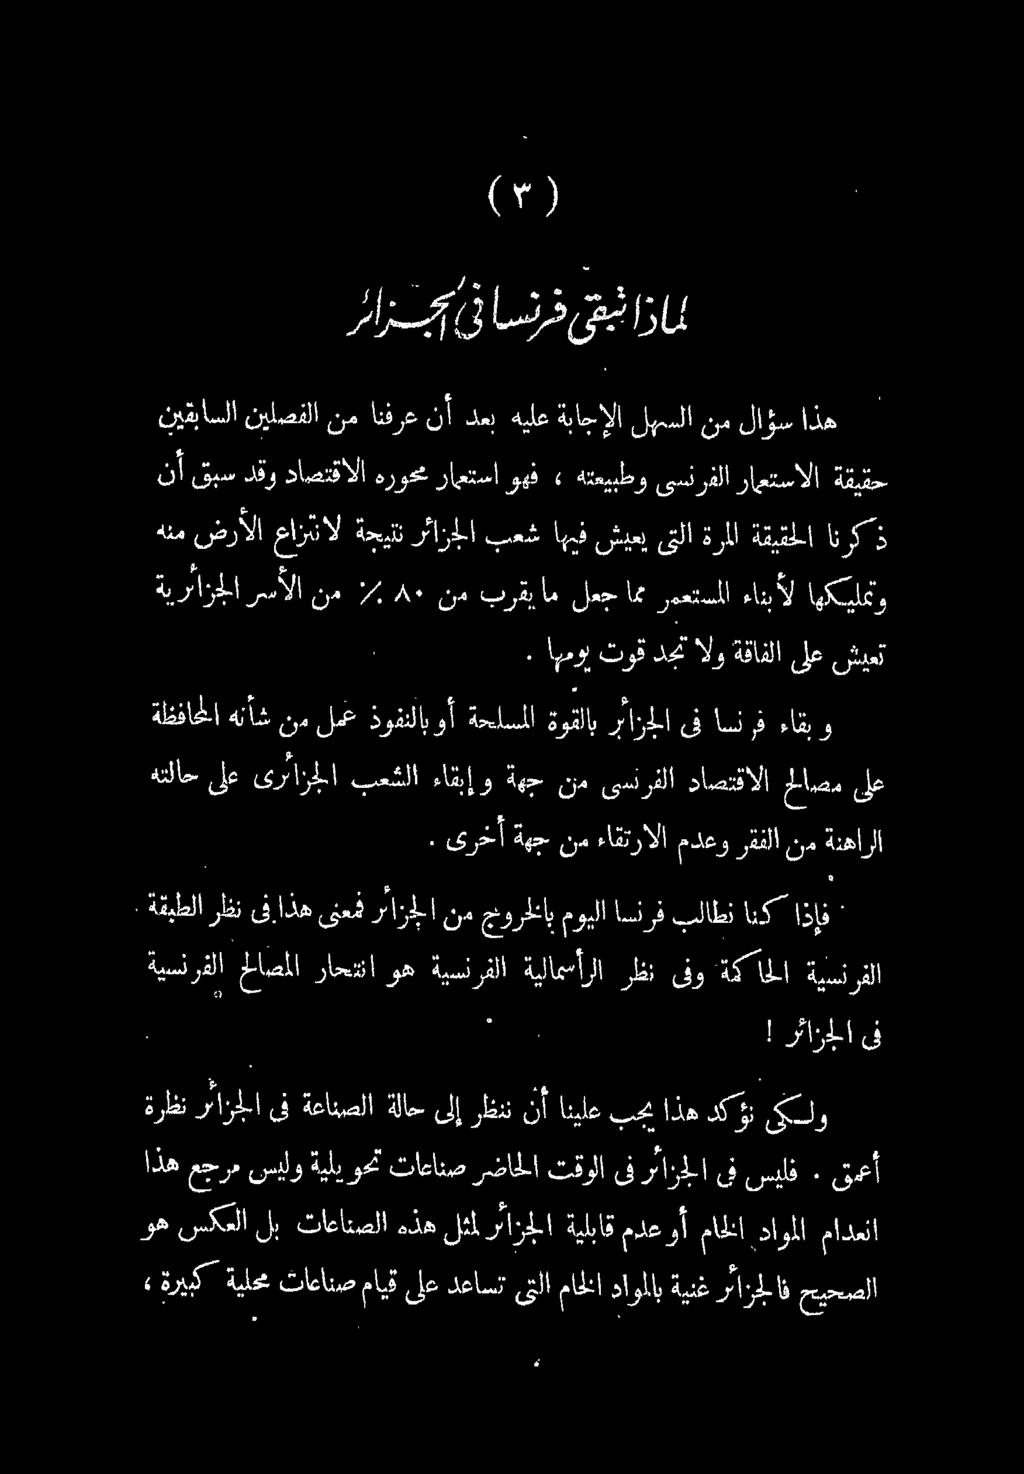 ( ٣ )
لماذا تبقى فرنسا فى الجزائر
هذا سؤال من السهل الإجابة عليه بعد أن عرفنا من الفصلين السابقين
حقيقة الاستعمار الفرنسى وطبيعته ، فهو استعمار محوره الاقتصاد وقد سبق أن
ذكرنا الحقيقة المرة التى يعيش فيها شعب الجزائر نتيجة لانتزاع الأرض منه
وتمليكها لأبناء المستعمر مما جعل ما يقرب من ٨٠ ٪ من الأسر الجزائرية
تعيش على الفاقة ولا تجد قوت يومها .
وبقاء فرنسا فى الجزائر بالقوة المسلحة أو بالنفوذ عمل من شأنه المحافظة
على مصالح الاقتصاد الفرنسى من جهة وإبقاء الشعب الجزائرى على حالته
الراهنة من الفقر وعدم الارتقاء من جهة أخرى .
فإذا كنا نطالب فرنسا اليوم بالخروج من الجزائر فمعنى هذا فى نظر الطبقة
الفرنسية الحاكمة وفى نظر الرأسمالية الفرنسية هو انتحار المصالح الفرنسية
فى الجزائر !
ولكى نؤكد هذا يجب علينا أن ننظر إلى حالة الصناعة فى الجزائر نظرة
أعمق . فليس فى الجزائر فى الوقت الحاضر صناعات تحويلية وليس مرجع هذا
انعدام المواد الخام أو عدم قابلية الجزائر لمثل هذه الصناعات بل العكس هو
الصحيح فالجزائر غنية بالمواد الخام التى تساعد على قيام صناعات محلية كبيرة ،